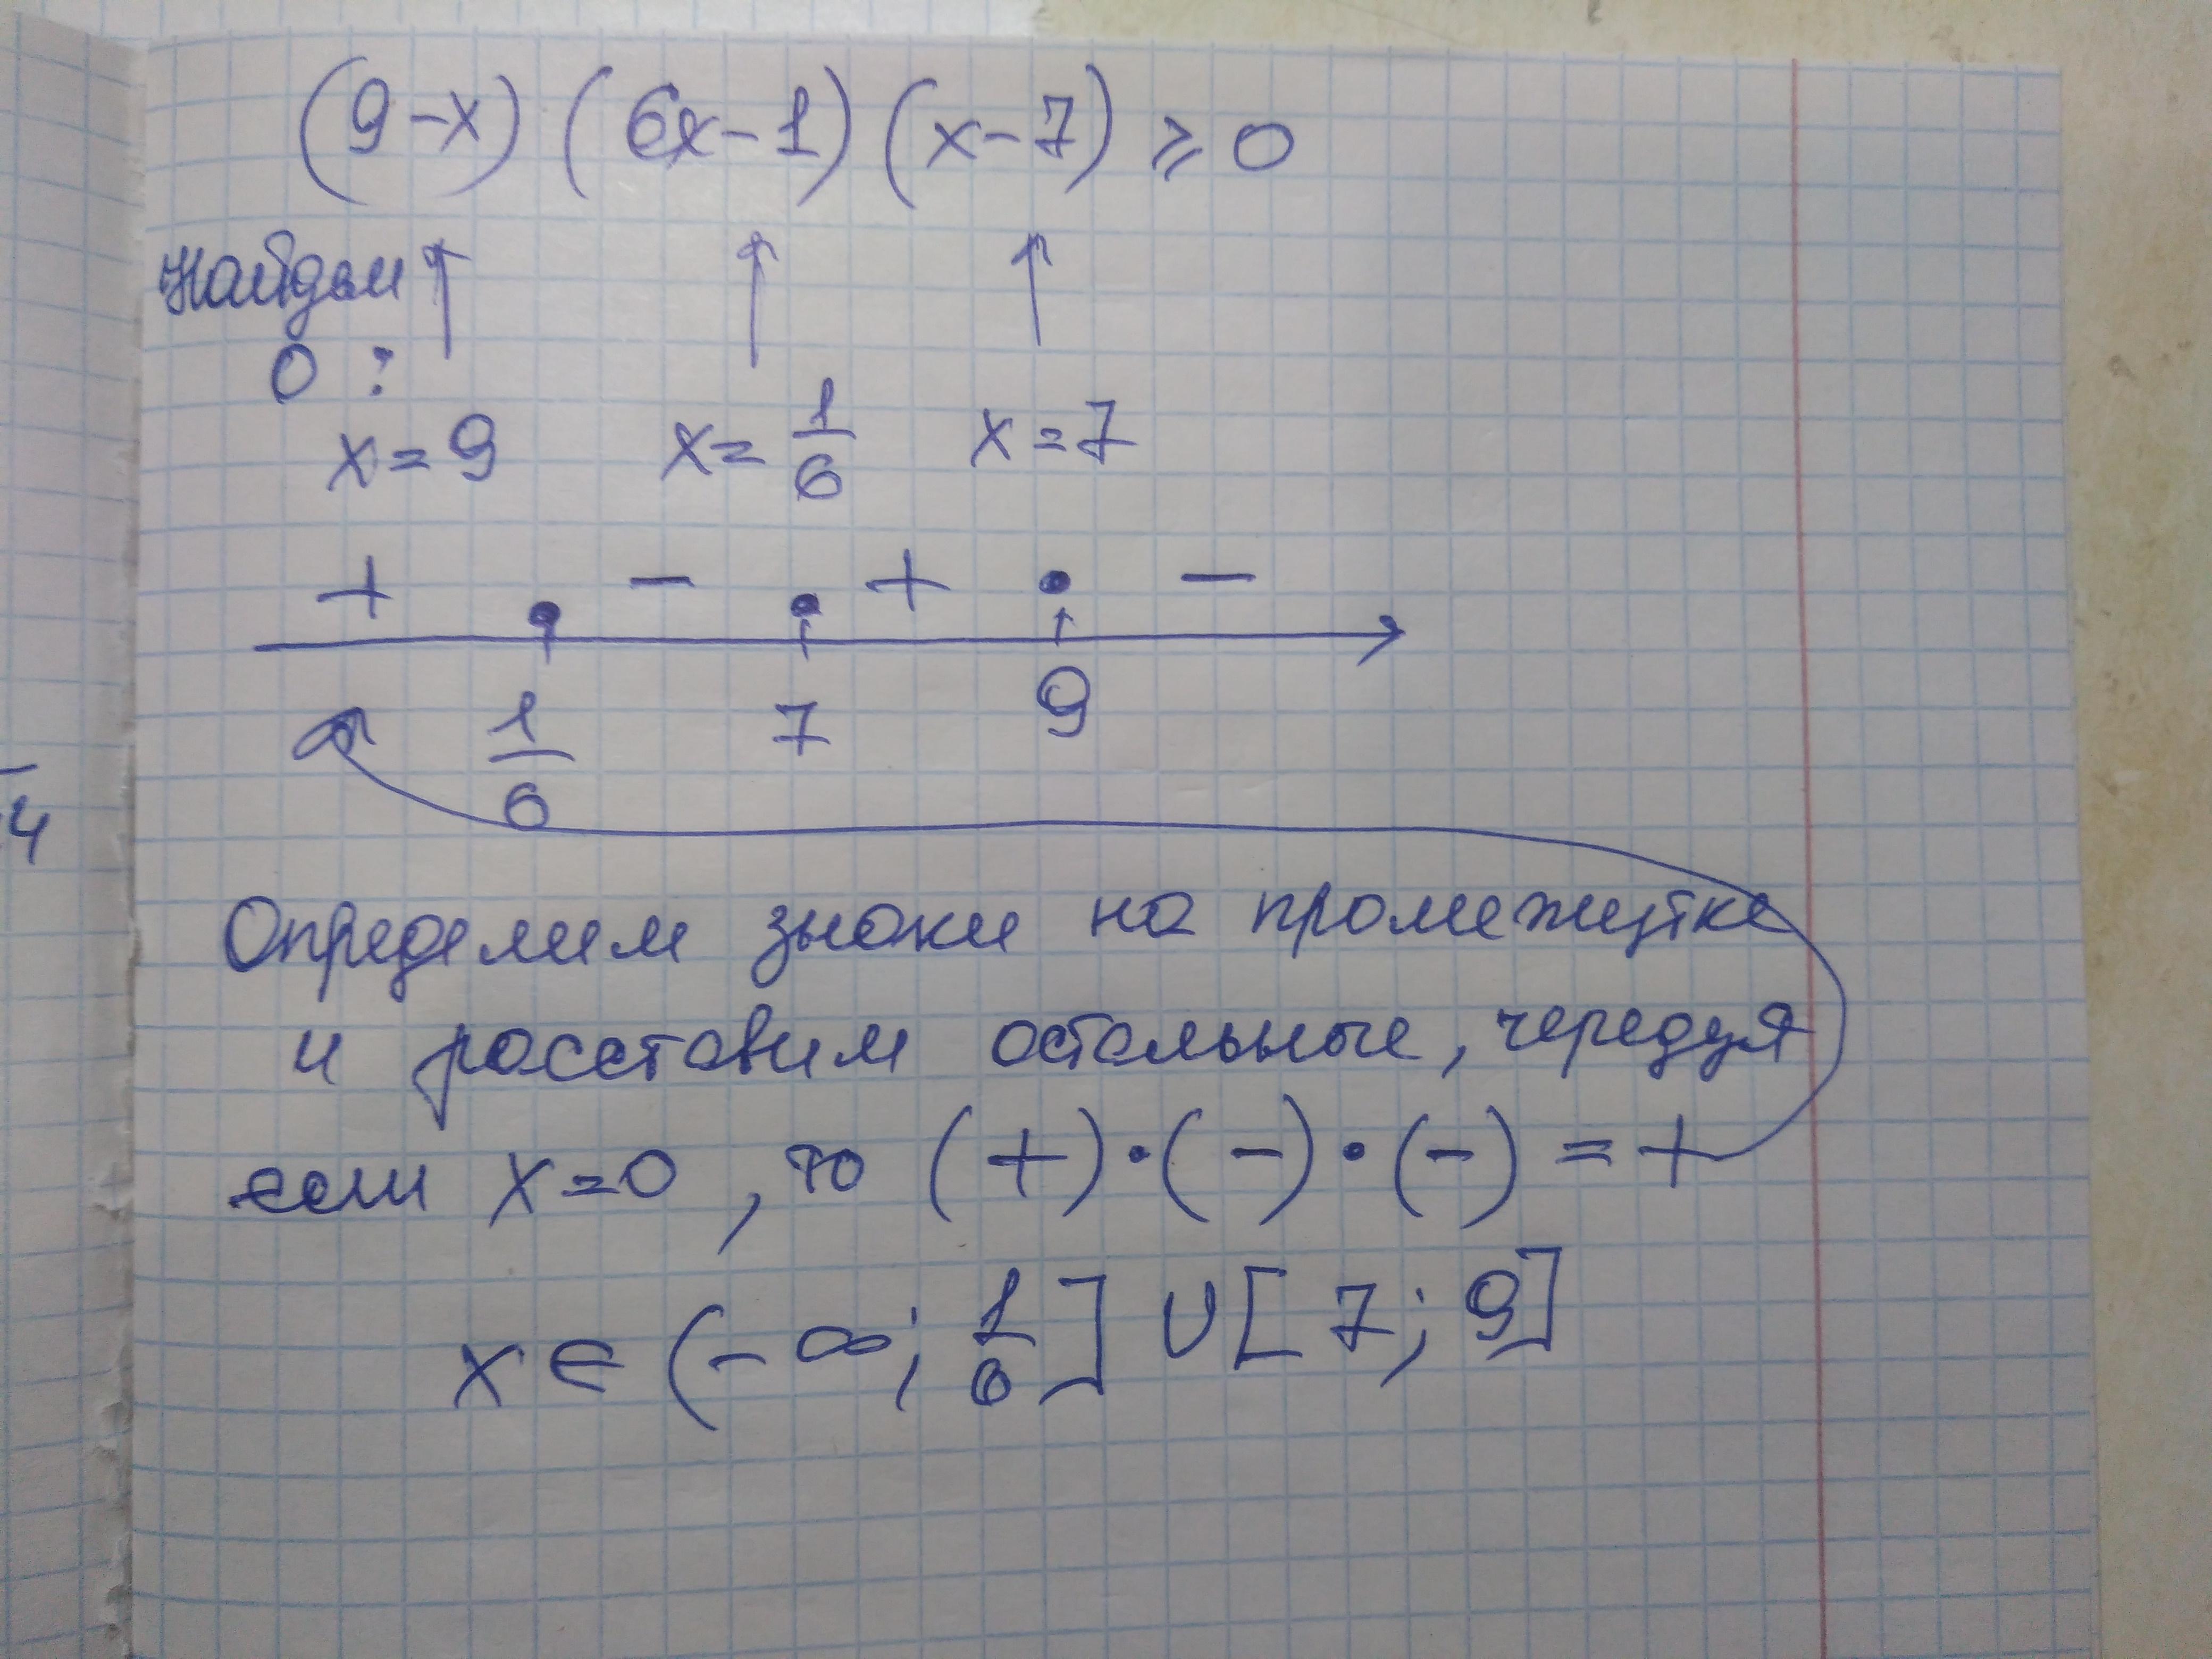 (9-x) (6x-1) (x-7) ⩾ 0
Найдём
0 :
x=9 x= 1/6 x=7
+ - + -
1/6 7 9
-
4
Определим знаки на промежутке
и расставим остальные, чередуя
если x=0, то (+)·(-)·(-) = +
x∈(-∞; 1/6] ∪ [7; 9]